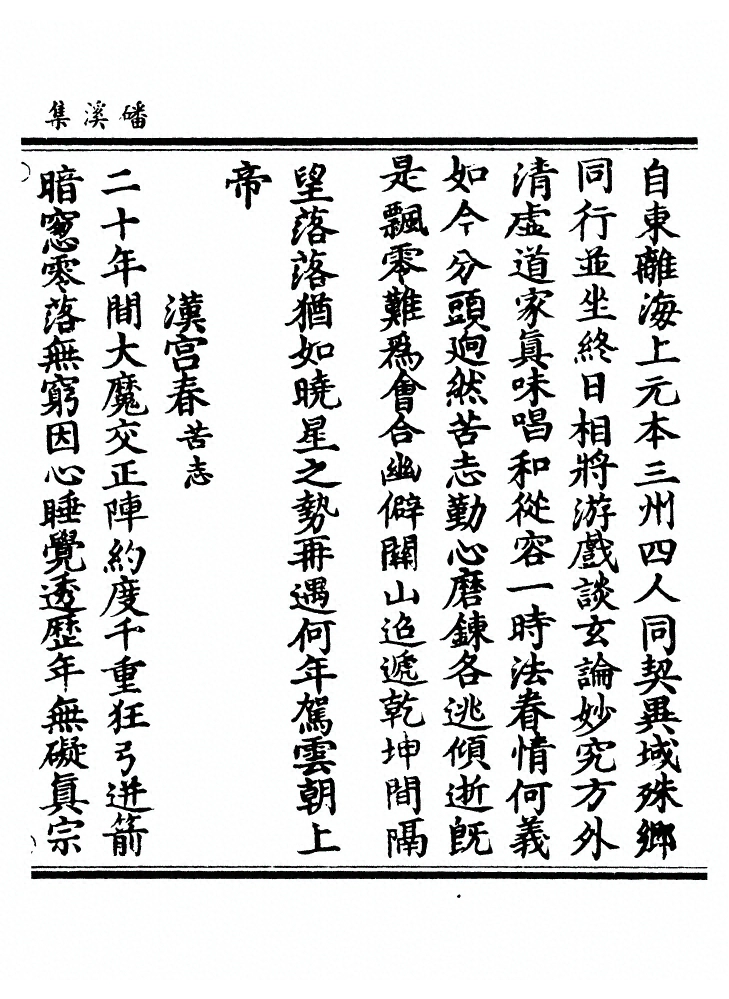 磻溪集
自東離海上元本三州四人同契異域殊鄉
同行並坐終日相將游戲談玄論妙究方外
清虛道家眞味唱和從容一時法眷情何義
如今分頭逈然苦志勤心磨鍊各逃傾逝旣
是飄零難爲會合幽僻關山迢遞乾坤間隔
望落落猶如曉星之勢再遇何年駕雲朝上
帝
漢宮春苦志
二十年間大魔交正陣約度千重狂弓迸箭
暗窻零落無窮因心睡覺透歷年無礙眞宗